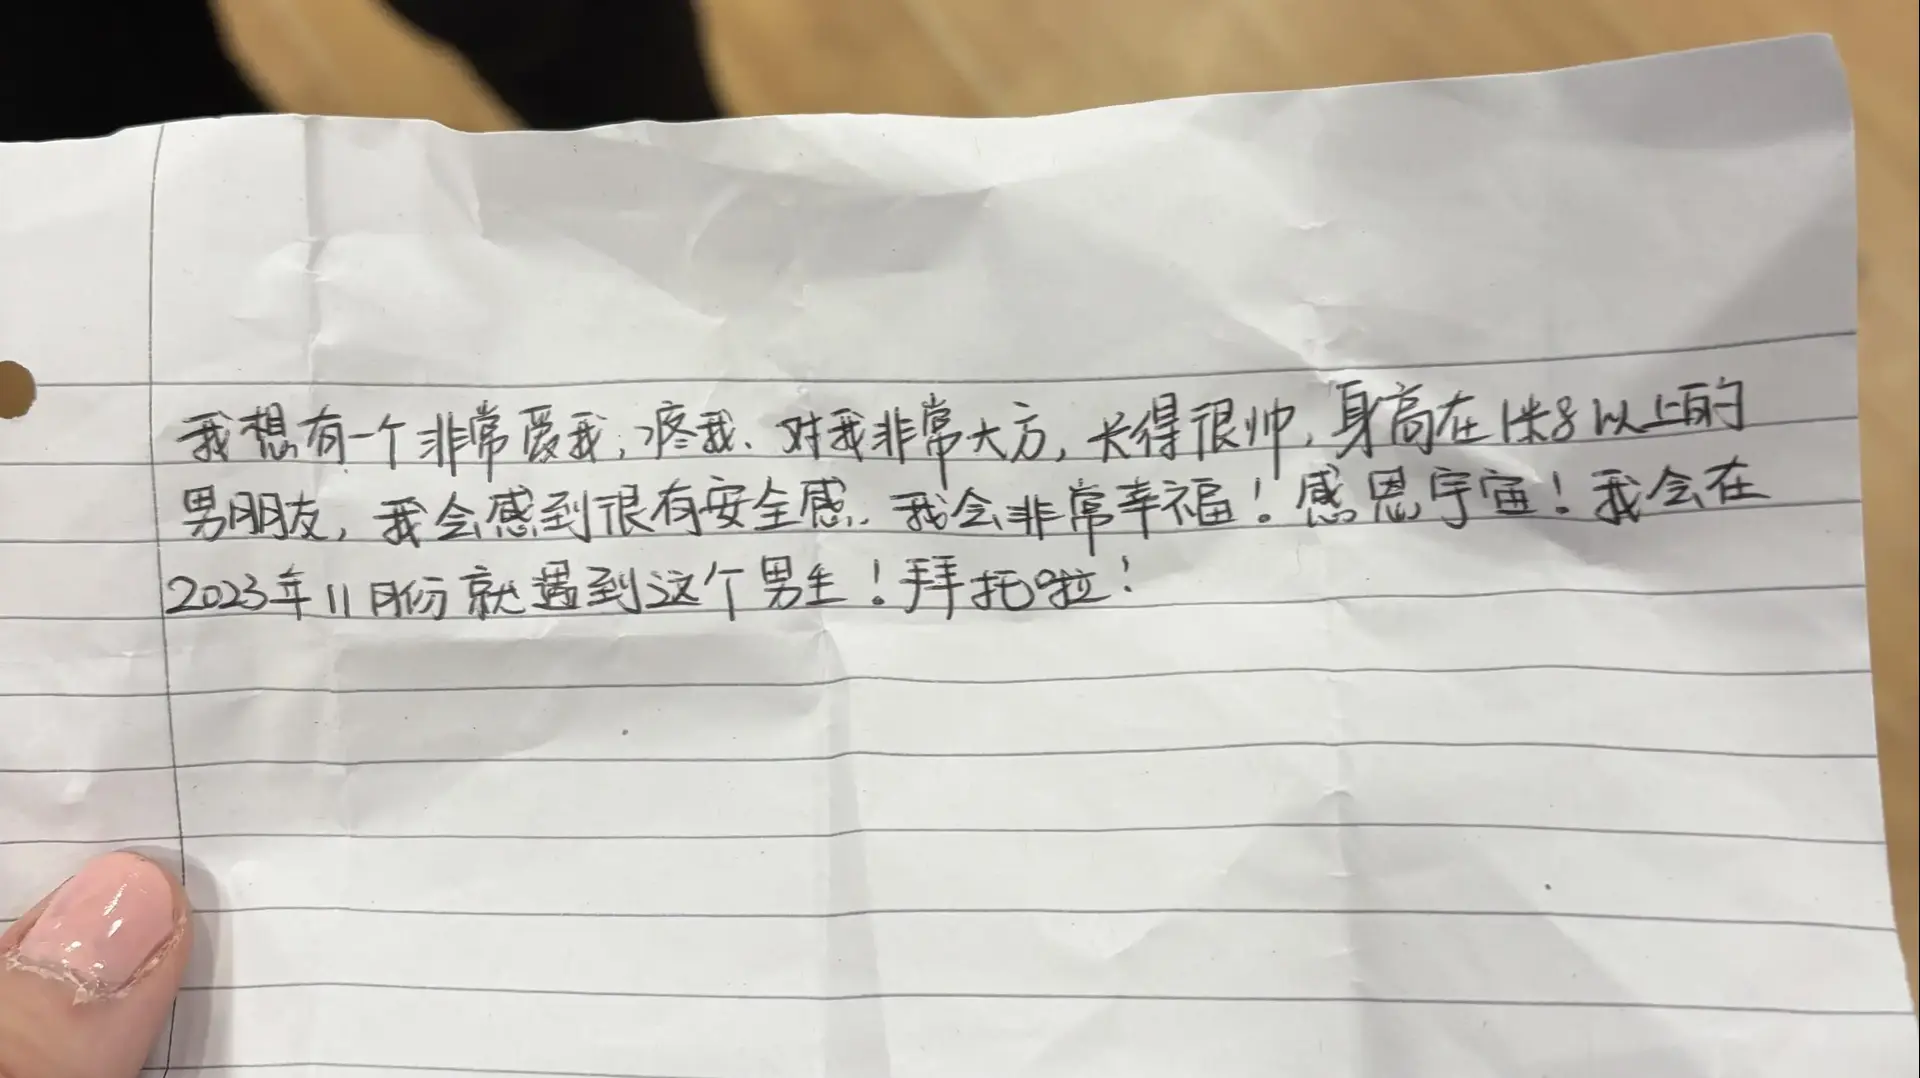 我想有一个非常爱我，疼我、对我非常大方，长得很帅，身高在1米8以上的
男朋友，我会感到很有安全感．我会非常幸福！感恩宇宙！我会在
2023年11月份就遇到这个男生！拜托啦！